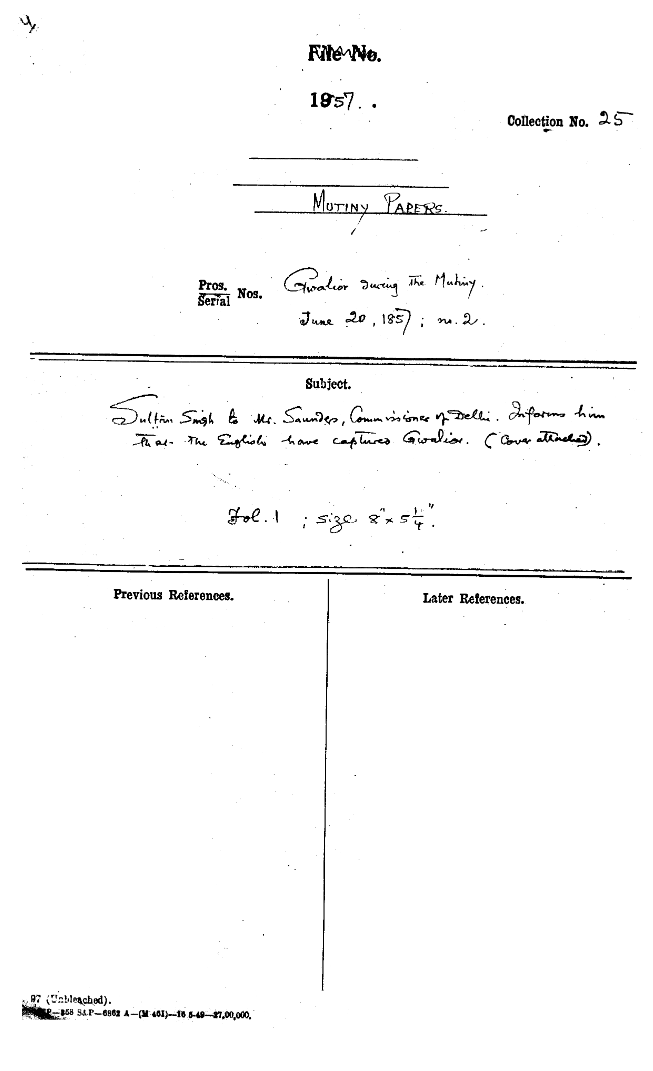 File No.
1857. .
Collection No. 25
MUTINY PAPERS.
Pros.
Serial Nos. Gwalior during the Mutiny.
June 20, 1857; no. 2.
Subject.
Sultan Singh to Mr. Saunders, Commissioner of Delhi. Informs him
that the English have captured Gwalior. (Cover attached).
Fol. 1 ; size 8" x 5 1/4".
Previous References.
Later References.
97 (Unbleached).
—858 S&P—6862 A—(M 461)—16 5-49—27,00,000.